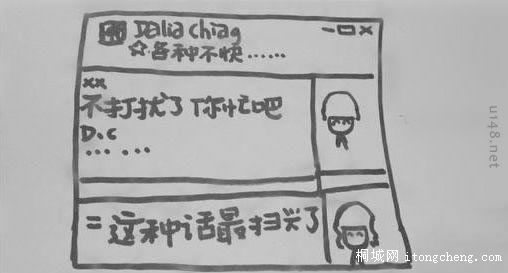 Dalia chiag
☆各种不快……
xx
不打扰了你忙吧
D.c
… …
=这种话最扫兴了
u148.net
桐城网 itongcheng.com